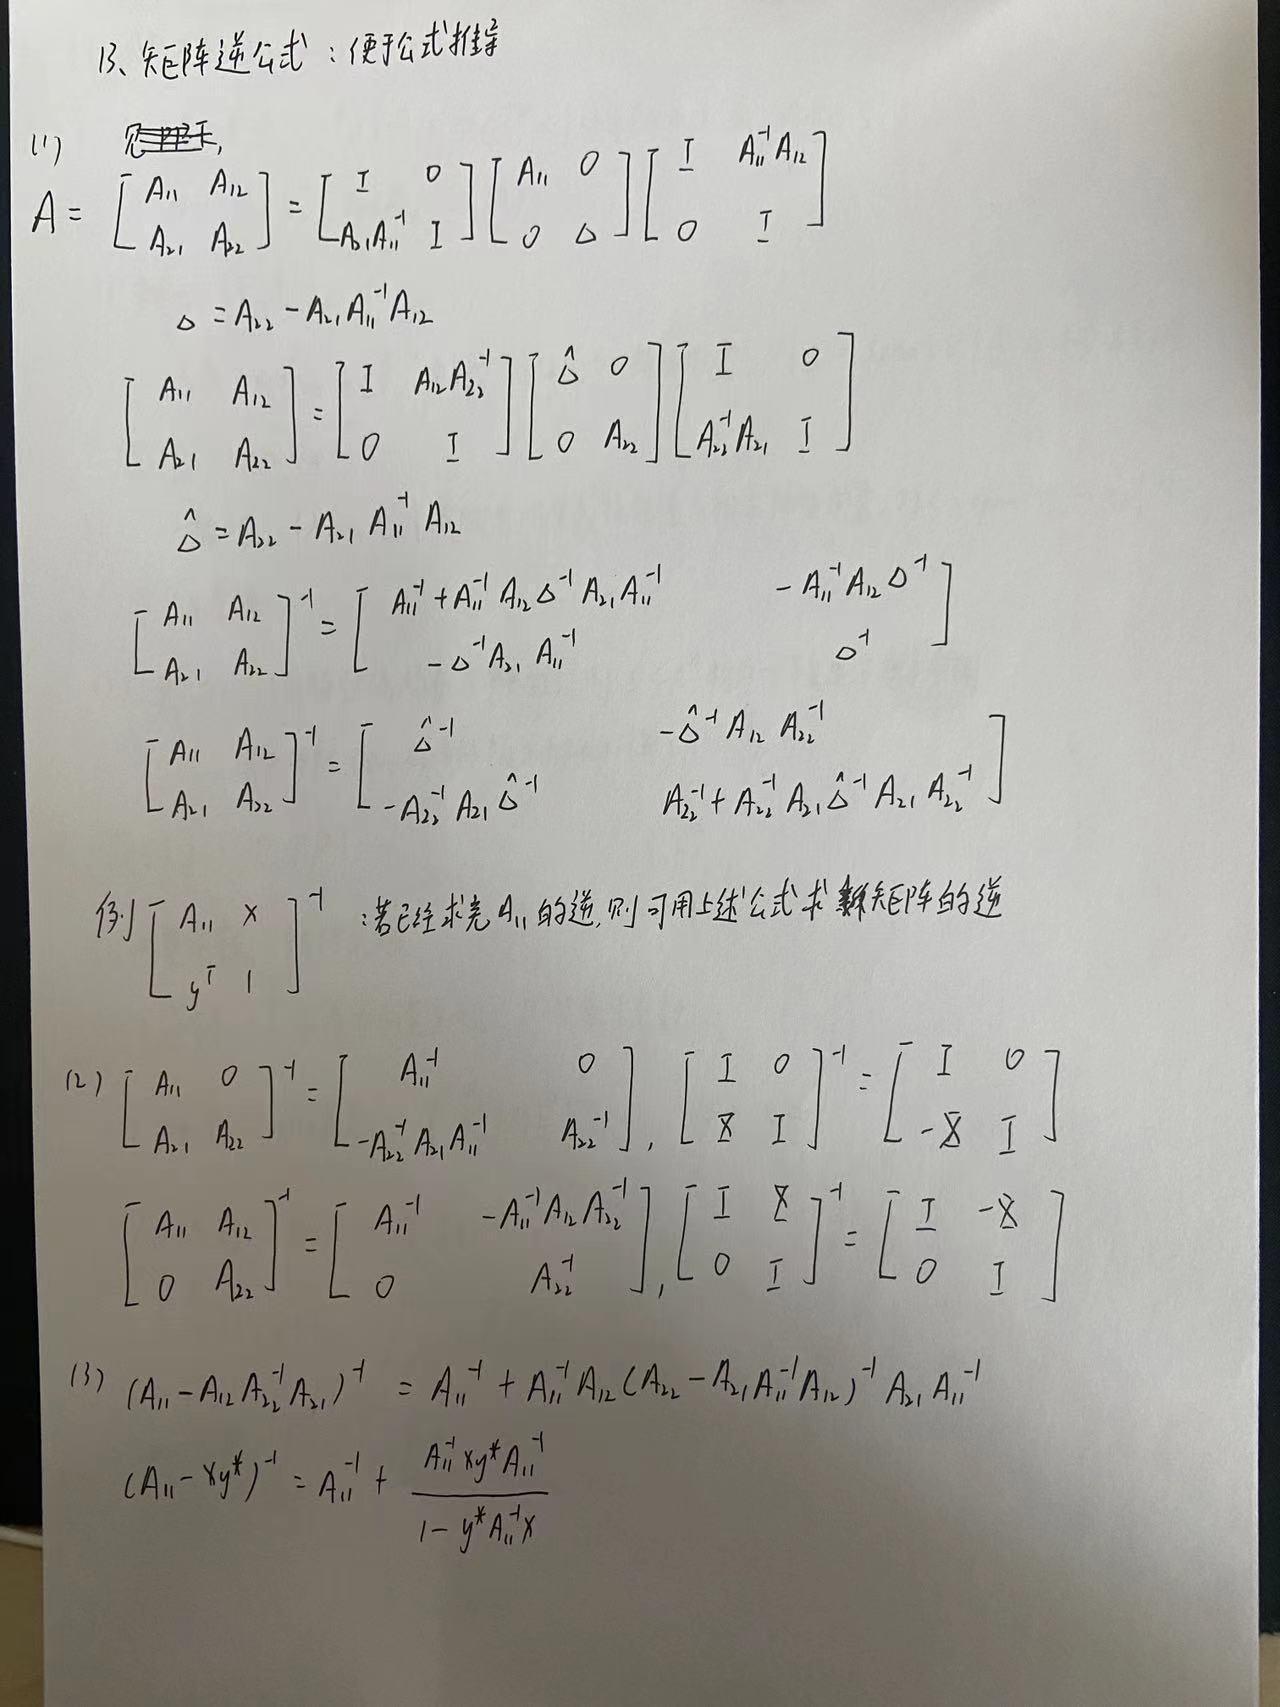 13、矩阵逆公式：便于公式推导
(1)
A = [ A₁₁ A₁₂ ; A₂₁ A₂₂ ] = [ I 0 ; A₂₁A₁₁⁻¹ I ] [ A₁₁ 0 ; 0 Δ ] [ I A₁₁⁻¹A₁₂ ; 0 I ]
Δ = A₂₂ − A₂₁A₁₁⁻¹A₁₂
[ A₁₁ A₁₂ ; A₂₁ A₂₂ ] = [ I A₁₂A₂₂⁻¹ ; 0 I ] [ Δ̂ 0 ; 0 A₂₂ ] [ I 0 ; A₂₂⁻¹A₂₁ I ]
Δ̂ = A₂₂ − A₂₁ A₁₁⁻¹ A₁₂
[ A₁₁ A₁₂ ; A₂₁ A₂₂ ]⁻¹ = [ A₁₁⁻¹ + A₁₁⁻¹ A₁₂ Δ⁻¹ A₂₁ A₁₁⁻¹ −A₁₁⁻¹ A₁₂ Δ⁻¹ ; −Δ⁻¹ A₂₁ A₁₁⁻¹ Δ⁻¹ ]
[ A₁₁ A₁₂ ; A₂₁ A₂₂ ]⁻¹ = [ Δ̂⁻¹ −Δ̂⁻¹ A₁₂ A₂₂⁻¹ ; −A₂₂⁻¹ A₂₁ Δ̂⁻¹ A₂₂⁻¹ + A₂₂⁻¹ A₂₁ Δ̂⁻¹ A₂₁ A₂₂⁻¹ ]
例 [ A₁₁ x ; yᵀ 1 ]⁻¹ ：若已经求完A₁₁的逆,则可用上述公式求新矩阵的逆
(2) [ A₁₁ 0 ; A₂₁ A₂₂ ]⁻¹ = [ A₁₁⁻¹ 0 ; −A₂₂⁻¹ A₂₁ A₁₁⁻¹ A₂₂⁻¹ ], [ I 0 ; X I ]⁻¹ = [ I 0 ; −X I ]
[ A₁₁ A₁₂ ; 0 A₂₂ ]⁻¹ = [ A₁₁⁻¹ −A₁₁⁻¹A₁₂A₂₂⁻¹ ; 0 A₂₂⁻¹ ], [ I X ; 0 I ]⁻¹ = [ I −X ; 0 I ]
(3) (A₁₁ − A₁₂ A₂₂⁻¹ A₂₁)⁻¹ = A₁₁⁻¹ + A₁₁⁻¹ A₁₂ (A₂₂ − A₂₁A₁₁⁻¹A₁₂)⁻¹ A₂₁ A₁₁⁻¹
(A₁₁ − xy*)⁻¹ = A₁₁⁻¹ + (A₁₁⁻¹ xy* A₁₁⁻¹) / (1 − y* A₁₁⁻¹ x)